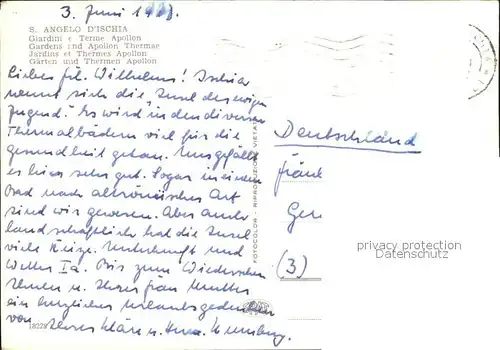 3. Juni
S. ANGELO D'ISCHIA
Giardini e Terme Apollon
Gardens and Apollon Thermae
Jardins et Thermes Apollon
Gärten und Thermen Apollon
Liebes Frl. Wilhelms! Ischia
nennt sich die "Insel der ewigen
Jugend". Es wird in den diversen
Thermalbädern viel für die
Gesundheit getan. Uns gefällt
es hier sehr gut. Sogar in einem
Bad nach altrömischer Art
sind wir gewesen. Aber auch
landschaftlich hat die Insel
viele Reize. Unterkunft und
Wetter Ia. Bis zum Wiedersehen
Ihnen u. Ihrer Frau Mutter
ein herzliches Urlaubsgedenken
von Ihrer Klara u. Herm.
18228
FOTOCOLOR - RIPRODUZIONE VIETATA
Deutschland
Fräul
Ger
(3)
privacy protection
Datenschutz